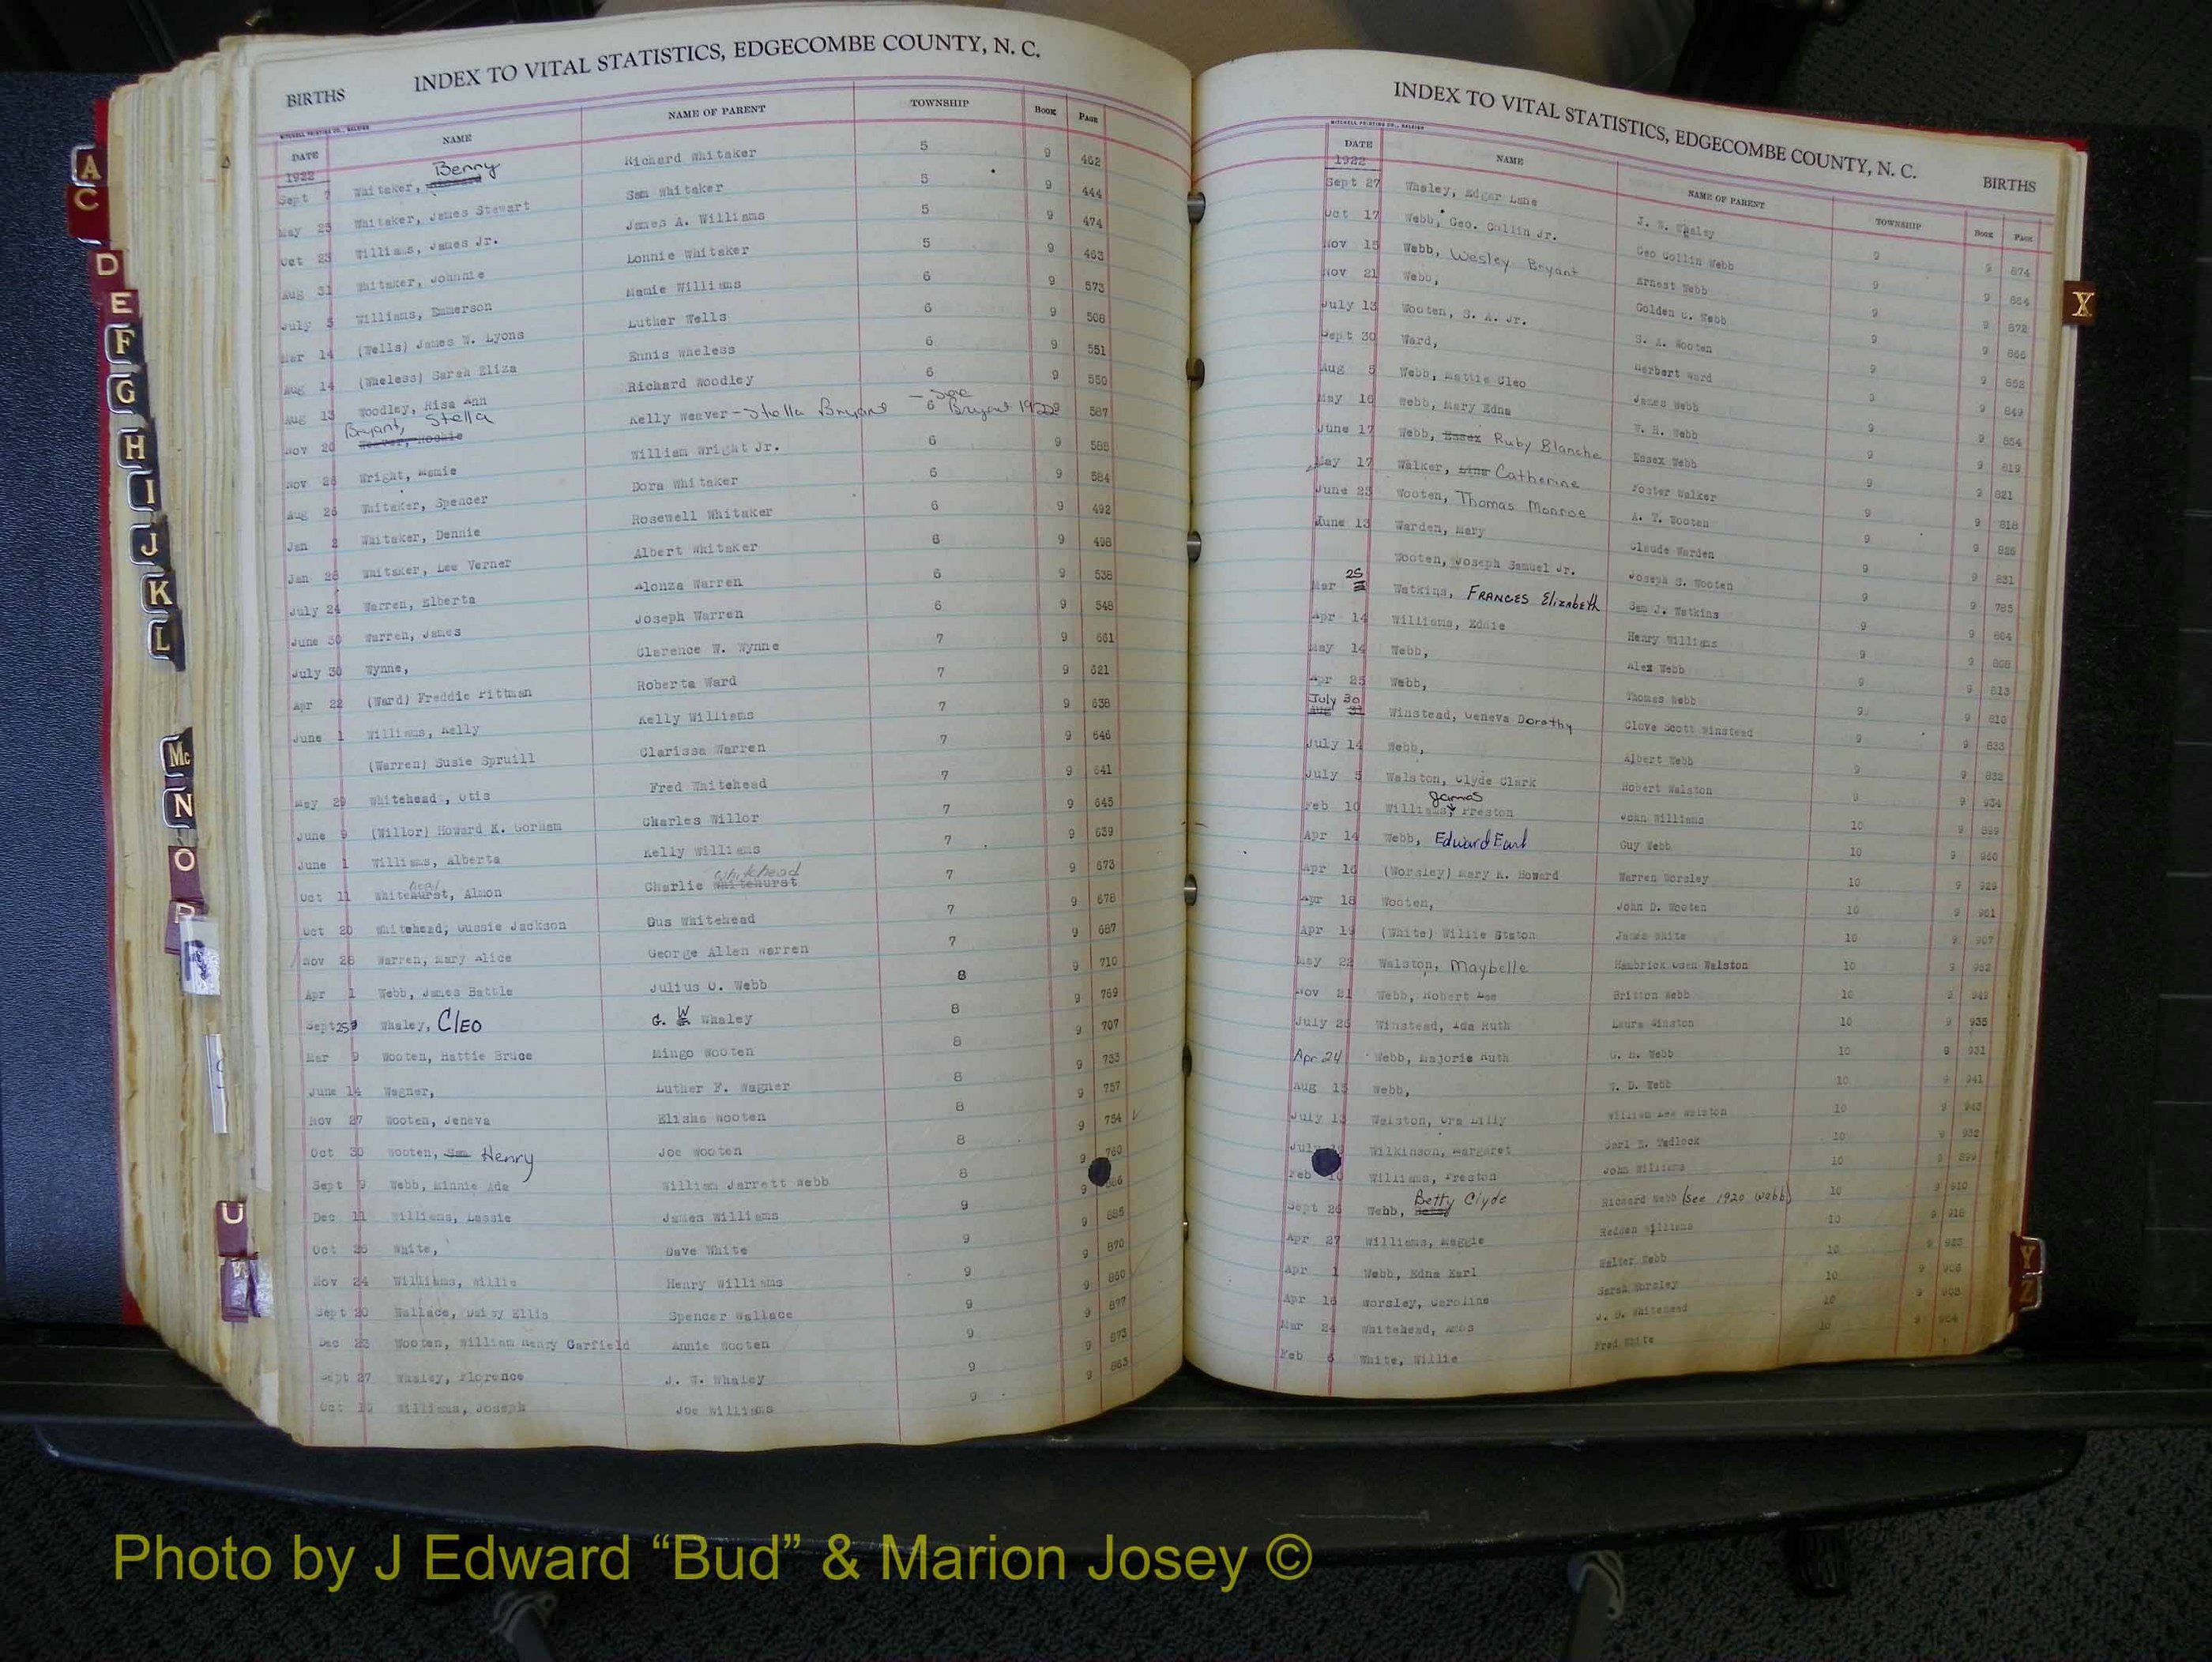 INDEX TO VITAL STATISTICS, EDGECOMBE COUNTY, N. C.
BIRTHS
MITCHELL PRINTING CO., RALEIGH
DATE NAME NAME OF PARENT TOWNSHIP Book Page
1922
Sept 7 Whitaker, Benny Richard Whitaker 5 9 462
May 25 Whitaker, James Stewart Sam Whitaker 5 9 444
Oct 23 Williams, James Jr. James A. Williams 5 9 474
Aug 31 Whitaker, Johnnie Lonnie Whitaker 5 9 463
July 5 Williams, Emmerson Mamie Williams 6 9 573
Mar 14 (Wells) James W. Lyons Luther Wells 6 9 508
Aug 14 (Wheless) Sarah Eliza Ennis Wheless 6 9 551
Aug 13 Woodley, Risa Ann Richard Woodley 6 9 550
Nov 20 Bryant, Stella Weaver, Kelly Weaver - Stella Bryant - See Bryant 1922 6 587
Nov 26 Wright, Mamie William Wright Jr. 6 9 588
Aug 26 Whitaker, Spencer Dora Whitaker 6 9 584
Jan 2 Whitaker, Dennie Rosewell Whitaker 6 9 492
Jan 26 Whitaker, Lee Verner Albert Whitaker 6 9 498
July 24 Warren, Elberta Alonza Warren 6 9 538
June 30 Warren, James Joseph Warren 6 9 548
July 30 Wynne, Clarence W. Wynne 7 9 661
Apr 22 (Ward) Freddie Pittman Roberta Ward 7 9 621
June 1 Williams, Kelly Kelly Williams 7 9 638
(Warren) Susie Spruill Clarissa Warren 7 9 646
May 29 Whitehead, Otis Fred Whitehead 7 9 641
June 9 (Willor) Howard K. Gorham Charles Willor 7 9 645
June 1 Williams, Alberta Kelly Williams 7 9 639
Oct 11 Whitehurst, head Almon Charlie Whitehurst Whitehead 7 9 673
Oct 20 Whitehead, Gussie Jackson Gus Whitehead 7 9 678
Nov 28 Warren, Mary Alice George Allen Warren 7 9 687
Apr 1 Webb, James Battle Julius O. Webb 8 9 710
Sept 25 Whaley, Cleo G. W Whaley 8 9 769
Mar 9 Wooten, Hattie Bruce Mingo Wooten 8 9 707
June 14 Wagner, Luther F. Wagner 8 9 733
Nov 27 Wooten, Jeneva Elisha Wooten 8 9 757
Oct 30 Wooten, Sam Henry Joe Wooten 8 9 754
Sept 9 Webb, Minnie Ada William Jarrett Webb 8 9 760
Dec 11 Williams, Lassie James Williams 9 9
Oct 26 White, Dave White 9 9 885
Nov 24 Williams, Willie Henry Williams 9 9 870
Sept 20 Wallace, Daisy Ellis Spencer Wallace 9 9 860
Dec 23 Wooten, William Henry Garfield Annie Wooten 9 9 877
Sept 27 Whaley, Florence J. W. Whaley 9 9 873
Oct 19 Williams, Joseph Joe Williams 9 9 863
INDEX TO VITAL STATISTICS, EDGECOMBE COUNTY, N. C.
BIRTHS
MITCHELL PRINTING CO., RALEIGH
DATE NAME NAME OF PARENT TOWNSHIP Book Page
1922
Sept 27 Whaley, Edgar Lane J. W. Whaley 9 9 874
Oct 17 Webb, Geo. Collin Jr. Geo Collin Webb 9 9 864
Nov 15 Webb, Wesley Bryant Ernest Webb 9 9 872
Nov 21 Webb, Golden C. Webb 9 9 866
July 13 Wooten, S. A. Jr. S. A. Wooten 9 9 852
Sept 30 Ward, Herbert Ward 9 9 849
Aug 5 Webb, Mattie Cleo James Webb 9 9 854
May 16 Webb, Mary Edna W. R. Webb 9 9 819
June 17 Webb, Essex Ruby Blanche Essex Webb 9 9 821
May 17 Walker, Catherine Foster Walker 9 9 818
June 23 Wooten, Thomas Monroe A. T. Wooten 9 9 826
June 13 Warden, Mary Claude Warden 9 9 831
Wooten, Joseph Samuel Jr. Joseph S. Wooten 9 9 785
Mar 25 Watkins, Frances Elizabeth Sam J. Watkins 9 9 804
Apr 14 Williams, Eddie Henry Williams 9 9 808
May 14 Webb, Alex Webb 9 9 813
Apr 25 Webb, Thomas Webb 9 9 810
July 30 Aug 31 Winstead, Geneva Dorothy Clove Scott Winstead 9 9 833
July 14 Webb, Albert Webb 9 9 832
July 5 Walston, Clyde Clark Robert Walston 9 9 934
Feb 10 Williams, James Preston John Williams 10 9 899
Apr 14 Webb, Edward Earl Guy Webb 10 9 960
Apr 16 (Worsley) Mary K. Howard Warren Worsley 10 9 929
Apr 18 Wooten, John D. Wooten 10 9 961
Apr 19 (White) Willie Staton James White 10 9 907
May 22 Walston, Maybelle Hambrick Owen Walston 10 9 952
Nov 21 Webb, Robert Lee Britton Webb 10 9 949
July 26 Winstead, Ada Ruth Laura Winston 10 9 935
Apr 24 Webb, Majorie Ruth G. H. Webb 10 9 931
Aug 15 Webb, W. D. Webb 10 9 941
July 13 Walston, Ora Lilly William Lee Walston 10 9 943
July Wilkinson, Margaret Carl E. Tadlock 10 9 932
Feb 10 Williams, Preston John Williams 10 9 899
Sept 26 Webb, Betty Clyde Richard Webb (see 1920 Webb) 10 9 910
Apr 27 Williams, Maggie Redden Williams 10 9 918
Apr 1 Webb, Edna Earl Walter Webb 10 9 920
Apr 16 Worsley, Caroline Sarah Worsley 10 9 908
Mar 24 Whitehead, J. D. Whitehead 10 9 903
Feb 6 White, Willie Fred White 10 9 904
A
C
D
E
F
G
H
I
J
K
L
Mc
N
O
P
U
W
X
Y
Z
Photo by J Edward “Bud” & Marion Josey ©